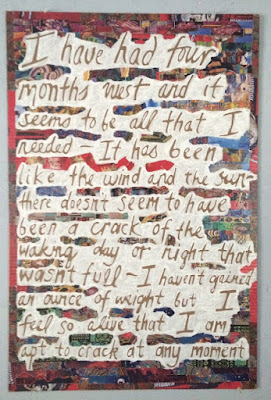 I have had four
months West and it
seems to be all that I
needed - It has been
like the wind and the sun-
there doesn't seem to have
been a crack of the
waking day or night that
wasn't full - I haven't gained
an ounce of weight but I
feel so alive that I am
apt to crack at any moment